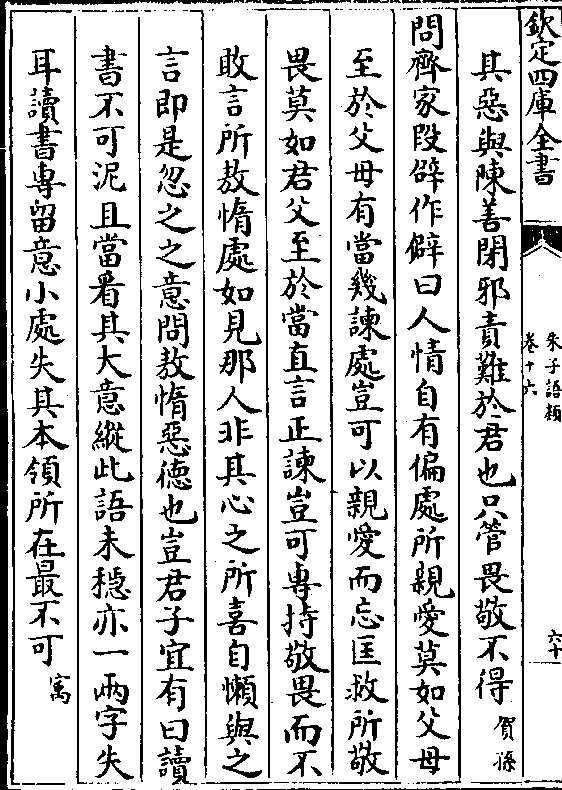 欽定四庫全書
朱子語類
卷十六
六十
其惡與陳善閉邪責難於君也只管畏敬不得賀孫
問齊家段辟作僻曰人情自有偏處所親愛莫如父母
至於父母有當幾諫處豈可以親愛而忘匡救所敬
畏莫如君父至於當直言正諫豈可專持敬畏而不
敢言所敖惰處如見那人非其心之所喜自懶與之
言即是忽之之意問敖惰惡德也豈君子宜有曰讀
書不可泥且當看其大意縱此語未穩亦一兩字失
耳讀書專留意小處失其本領所在最不可寓